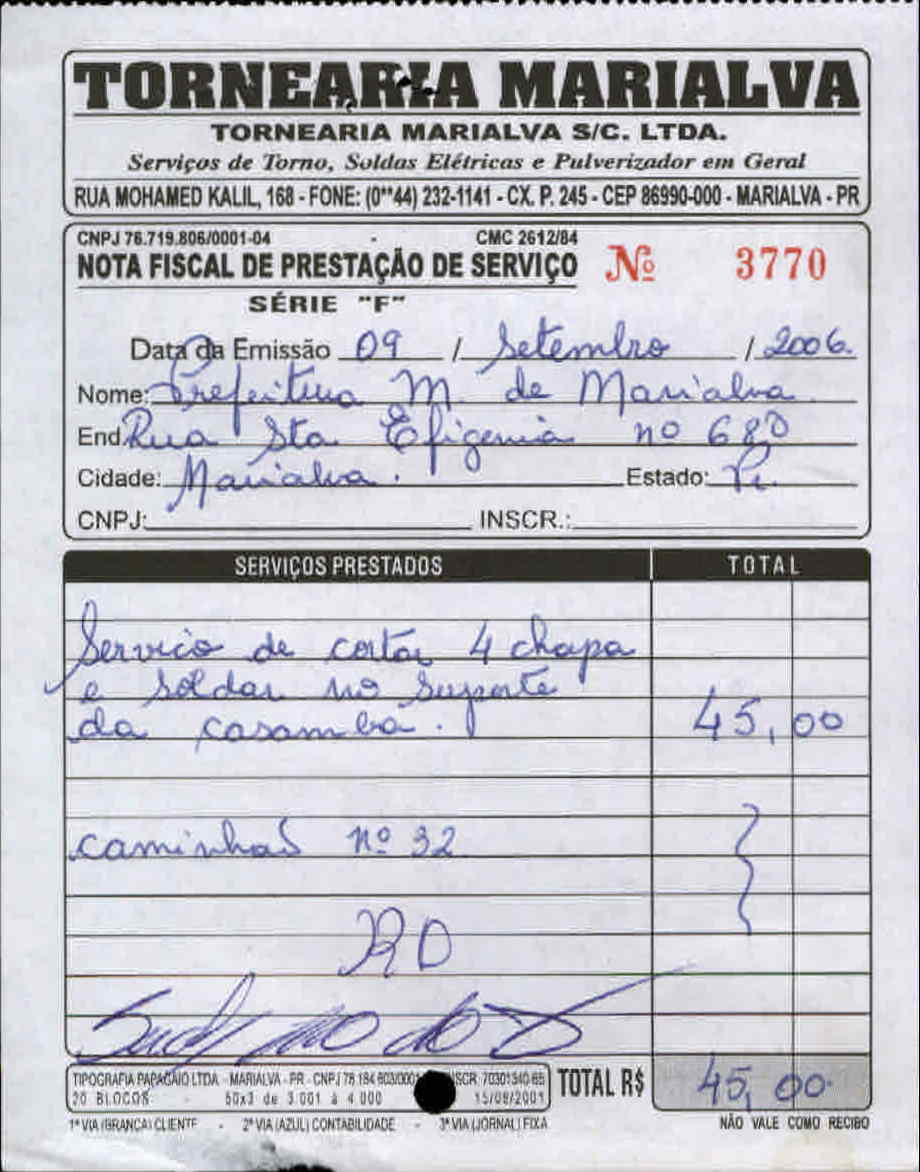 TORNEARIA MARIALVA
TORNEARIA MARIALVA S/C. LTDA.
Serviços de Torno, Soldas Elétricas e Pulverizador em Geral
RUA MOHAMED KALIL, 168 - FONE: (0**44) 232-1141 - CX. P. 245 - CEP 86990-000 - MARIALVA - PR
CNPJ 76.719.806/0001-04 CMC 2612/84
NOTA FISCAL DE PRESTAÇÃO DE SERVIÇO Nº 3770
SÉRIE "F"
Data da Emissão 09 / Setembro / 2006.
Nome: Prefeitura M. de Marialva.
End. Rua Sta Efigenia nº 680
Cidade: Marialva. Estado: Pr.
CNPJ: INSCR.:
SERVIÇOS PRESTADOS TOTAL
Servico de cortar 4 chapa
e soldar no suporte
da casamba. 45,00
caminhaõ nº 32
RD
TIPOGRAFIA PAPAGAIO LTDA - MARIALVA - PR - CNPJ 78.184.603/0001 INSCR 70301540-65
20 BLOCOS - 50x3 de 3.001 à 4.000 15/08/2001
TOTAL R$ 45,00
1ª VIA (BRANCA) CLIENTE - 2ª VIA (AZUL) CONTABILIDADE - 3ª VIA (JORNAL) FIXA
NÃO VALE COMO RECIBO